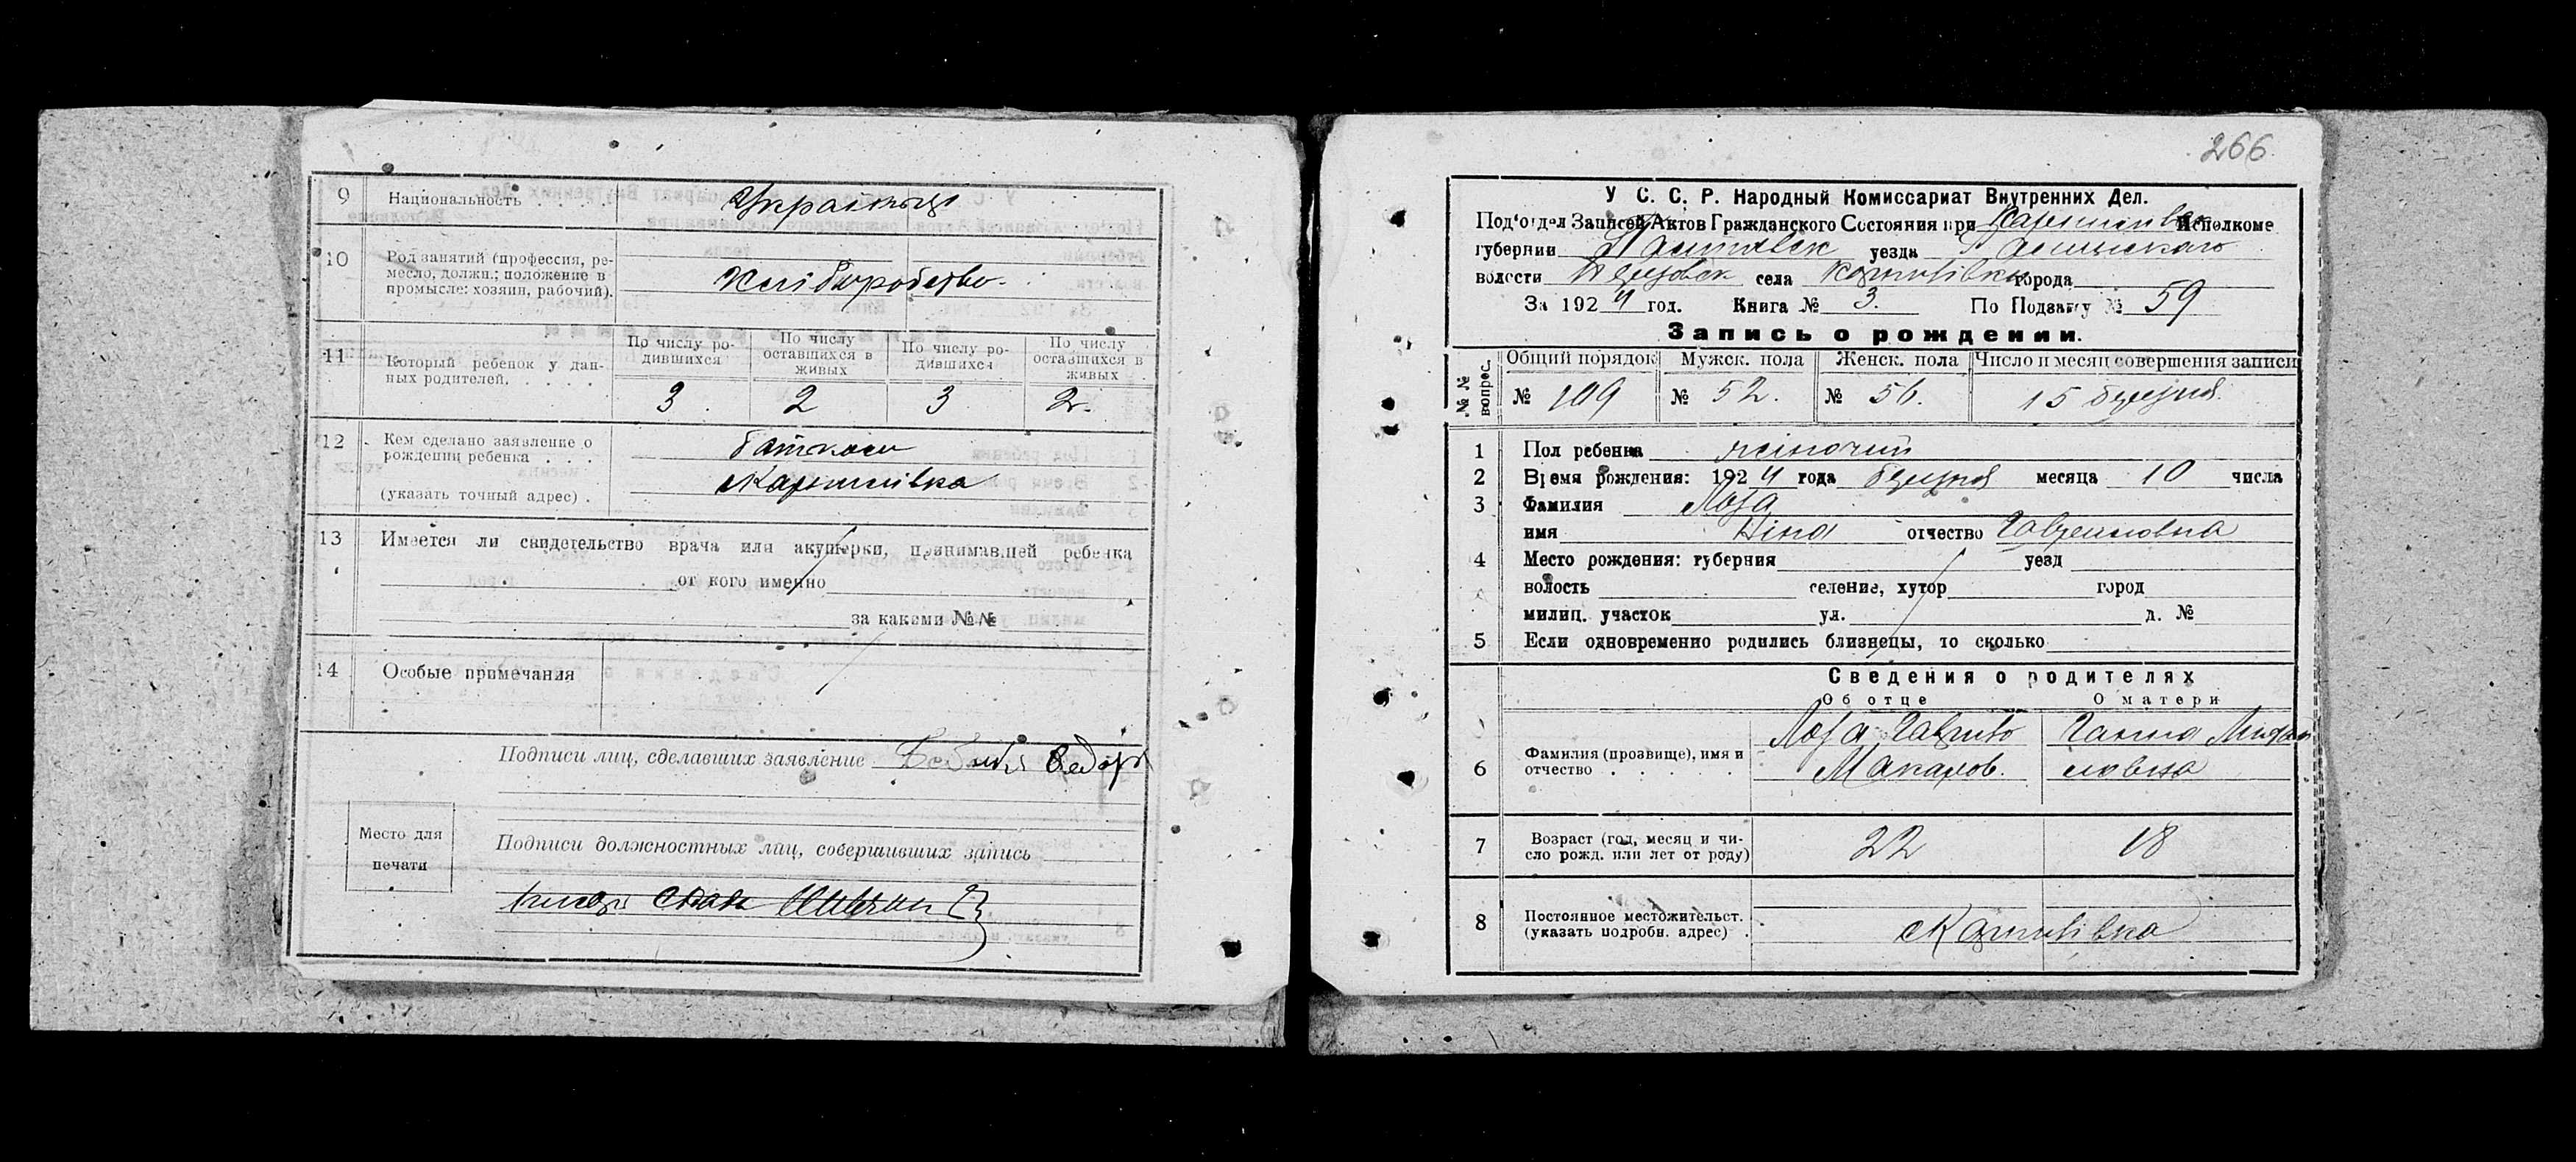 9 Национальность . . . . . Українці
10 Род занятий (профессия, ре-
месло, должн.; положение в
промысле: хозяин, рабочий).
Хліборобство.
11 Который ребенок у дан-
ных родителей. . . . .
По числу ро-
дившихся
По числу
оставшихся в
живых
По числу ро-
дившихся
По числу
оставшихся в
живых
3. 2 3 2.
12 Кем сделано заявление о
рождении ребенка . . .
(указать точный адрес) .
батьком
13 Имеется ли свидетельство врача или акушерки, принимавшей ребенка
от кого именно
за какеми №№
14 Особые примечания
Подписи лиц, сделавших заявление
Место для
печати
Подписи должностных лиц, совершивших запись
266
У С. С. Р. Народный Комиссариат Внутренних Дел.
Под'отдел Записей Актов Гражданского Состояния при Исполкоме
губернии уезда
волости села города
За 1924 год. Книга № 3. По Подзагу № 59
Запись о рождении.
№№ вопрос. Общий порядок Мужск. пола Женск. пола Число и месяц совершения записи
№ 109 № 52. № 56. 15 березня
1 Пол ребенка жіночий
2 Время рождения: 1924 года березня месяца 10 числа
3 Фамилия Лоза
имя Ніна отчество Гавриловна
4 Место рождения: губерния уезд
волость селение, хутор город
милиц. участок ул. д. №
5 Если одновременно родились близнецы, то сколько
Сведения о родителях
Об отце О матери
6 Фамилия (прозвище), имя и
отчество . . . . .
Лоза Гаврило
Макаров.
Ганна Михай
ловна
7 Возраст (год, месяц и чи-
сло рожд. или лет от роду)
22 18
8 Постоянное местожительст.
(указать подробн. адрес) .